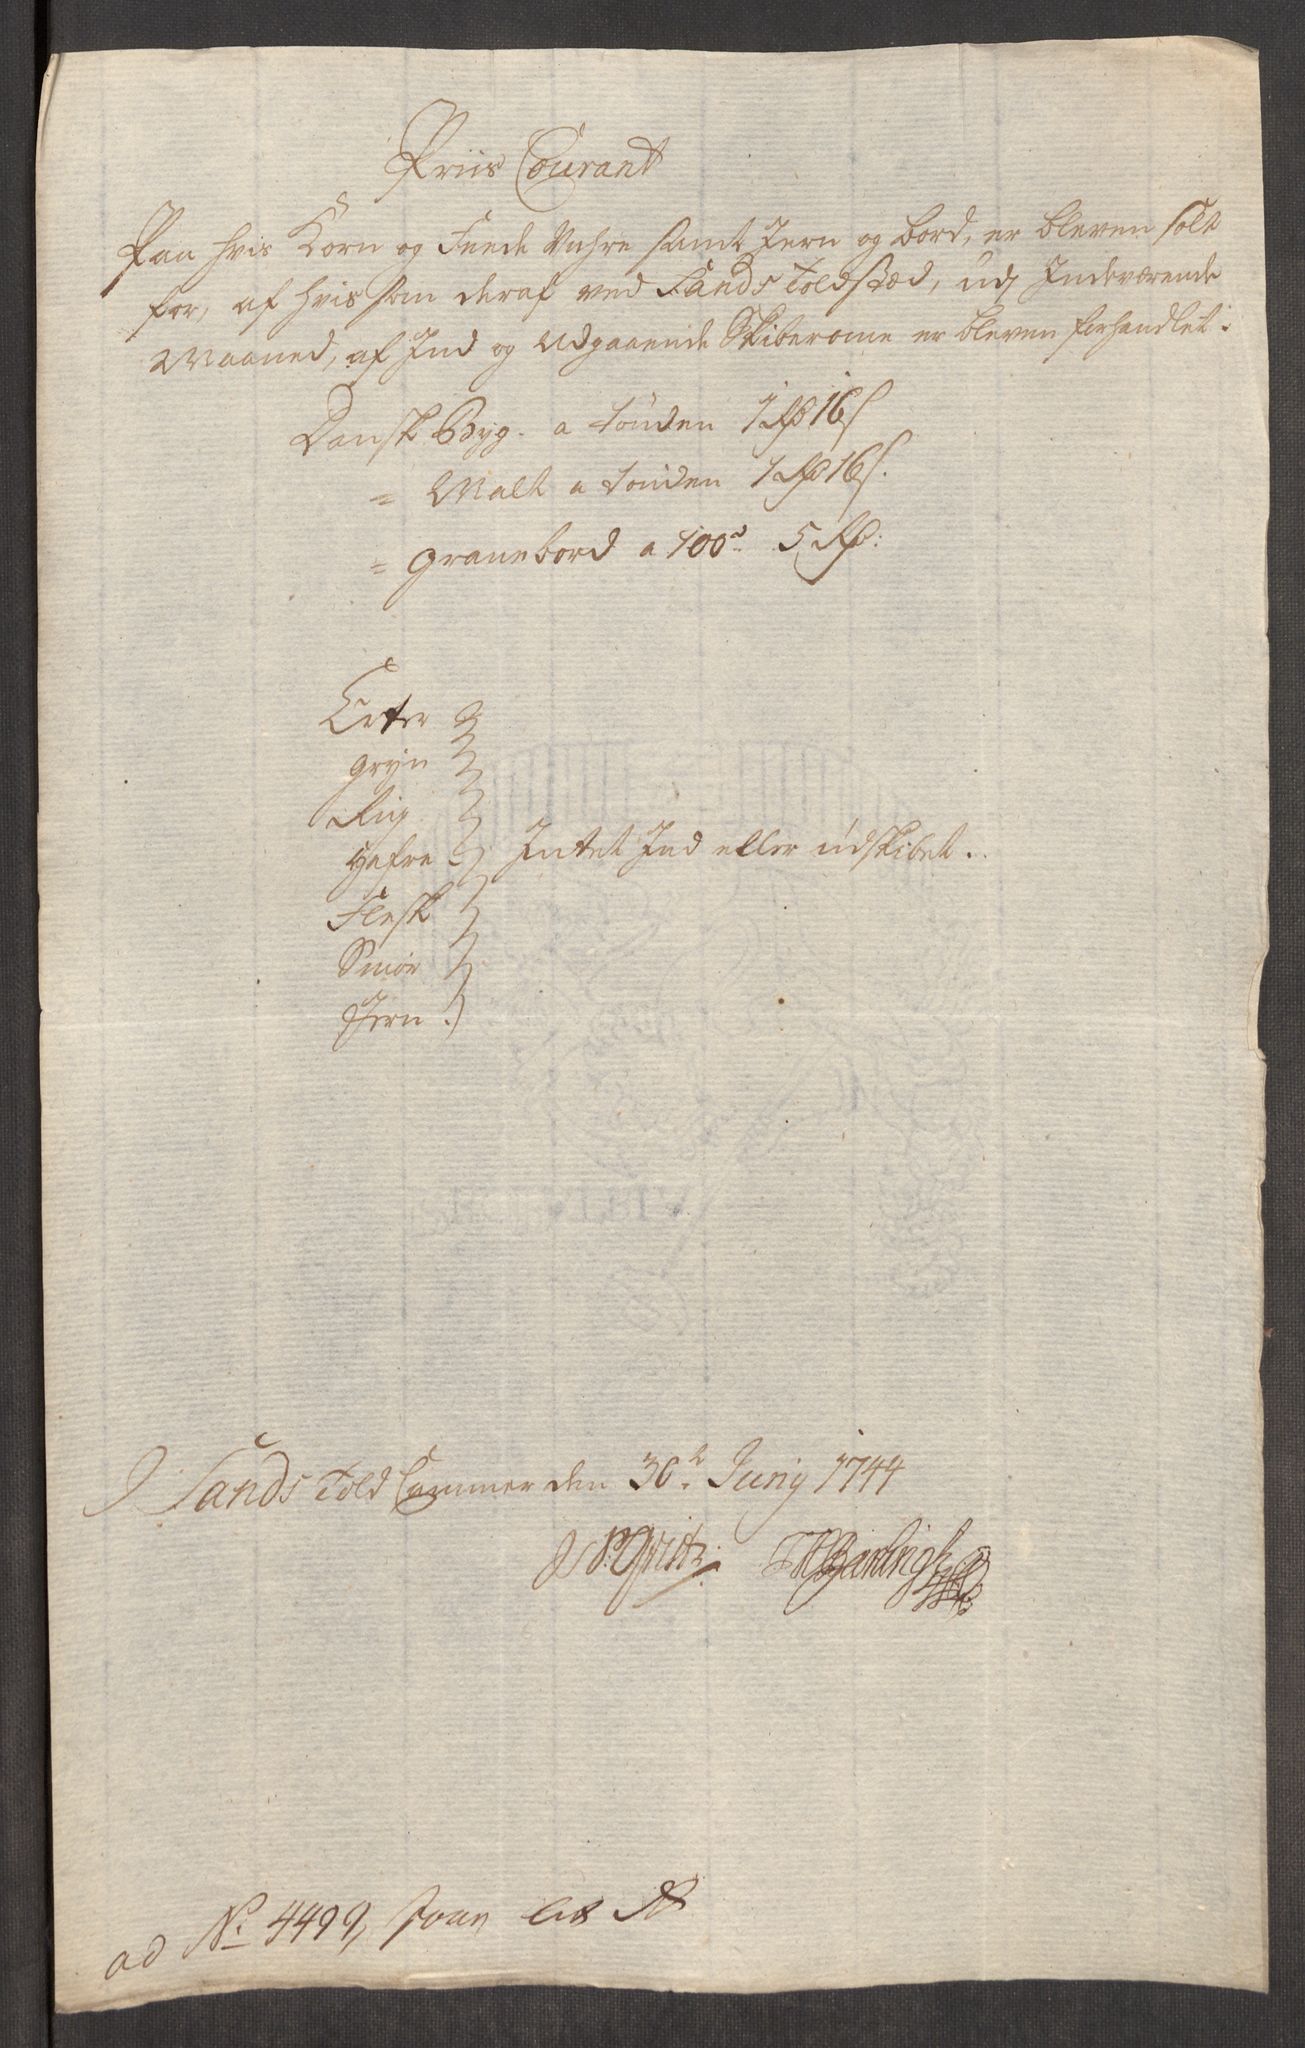 Priis Courant
Paa hvis Korn og Feede Vahre samt Jern og bord, er bleven solt
for, af hvis som deraf ved Sands Toldstæd, udj Indeværende
Maaned, af Ind og Udgaaende Skiberome er bleven forhandlet.
Dansk Byg. a tønden 1 Rd 16 s
= Malt a tønden 1 Rd 16 s.
= granebord a 100d 5 Rd:
Erter
gryn
Rug
Hafre
Flesk
Smør
Jern
Intet Ind eller udskibet.
Sands Told Cammer den 30te Junij 1744
ad No. 4499, lit A